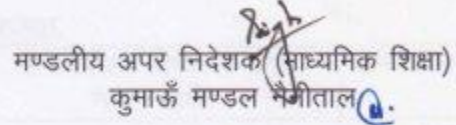 मण्डलीय अपर निदेशक (माध्यमिक शिक्षा)
कुमाऊँ मण्डल नैनीताल